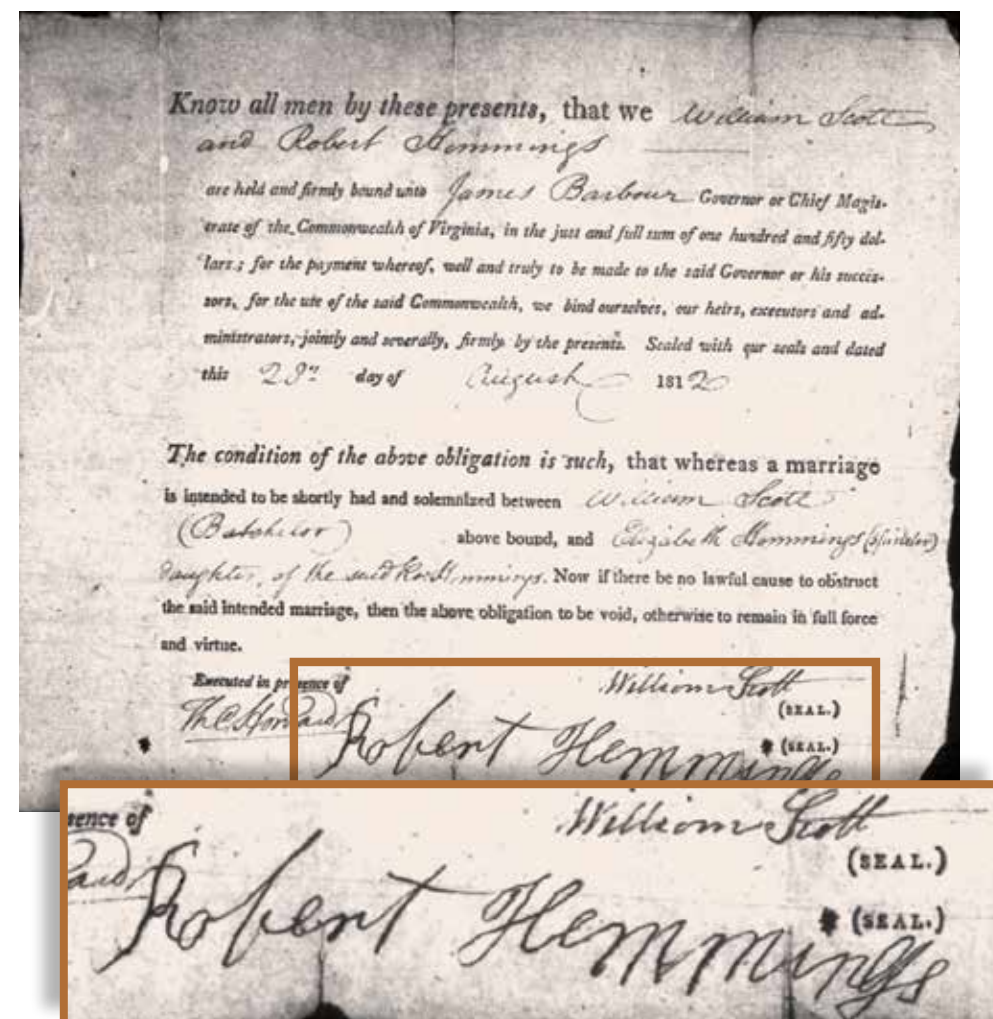 Know all men by these presents, that we William Scott
and Robert Hemmings
are held and firmly bound unto James Barbour Governor or Chief Magis-
trate of the Commonwealth of Virginia, in the just and full sum of one hundred and fifty dol-
lars; for the payment whereof, well and truly to be made to the said Governor or his succes-
sors, for the use of the said Commonwealth, we bind ourselves, our heirs, executors and ad-
ministrators, jointly and severally, firmly by the presents. Sealed with our seals and dated
this day of August 1812
The condition of the above obligation is such, that whereas a marriage
is intended to be shortly had and solemnized between William Scott
(Batchelor) above bound, and Elizabeth Hemmings (spinster)
daughter of the said Ro. Hemmings. Now if there be no lawful cause to obstruct
the said intended marriage, then the above obligation to be void, otherwise to remain in full force
and virtue.
Executed in presence of William Scott
(SEAL.)
Th. C. Howard Robert Hemmings (SEAL.)
sence of William Scott
(SEAL.)
Robert Hemmings (SEAL.)